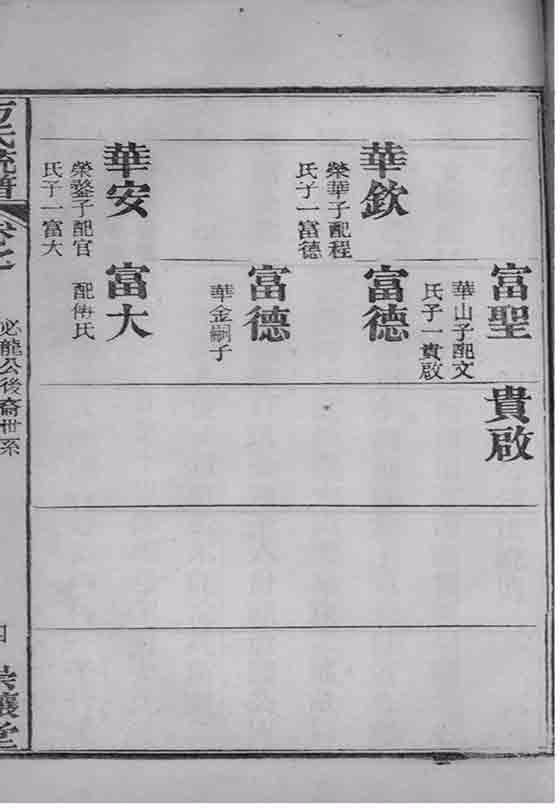 富聖
華山子配文
氏子一貴啟
貴啟
華欽
榮華子配程
氏子一富德
富德
富德
華金嗣子
華安
榮鏊子配官
氏子一富大
富大
配傅氏
方氏統譜
卷之十
必龍公後裔世系
四
崇讓堂